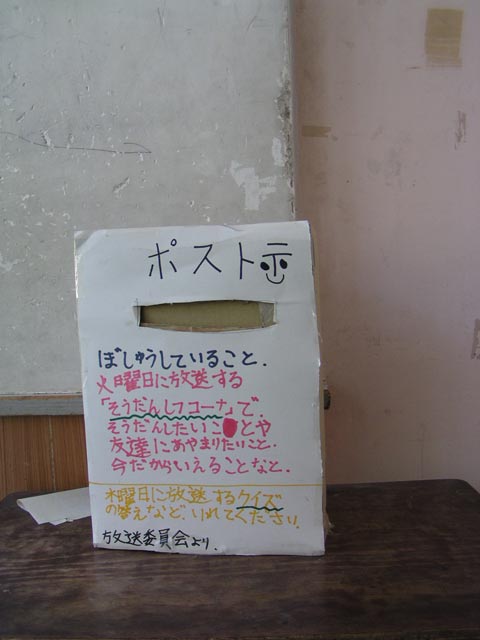 ポスト
ぼしゅうしていること.
火曜日に放送する
「そうだんしつコーナ」で.
そうだんしたいことや
友達にあやまりたいこと.
今だからいえることなど.
木曜日に放送するクイズ
の答えなど、いれてください.
放送委員会より.